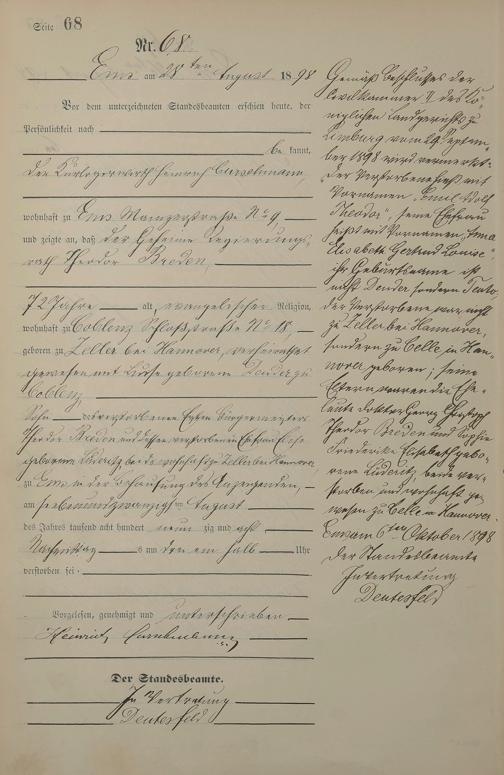 Seite 68
Nr. 68.
Ems am 28ten August 1898
Vor dem unterzeichneten Standesbeamten erschien heute, der
Persönlichkeit nach
be kannt,
der Heinrich
wohnhaft zu Ems Mainzerstraße No 9,
und zeigte an, daß der Geheime Regierungs-
rath Theodor Breden,
72 Jahre alt, evangelischer Religion,
wohnhaft zu Coblenz Schloßstraße No 18,
geboren zu Zelle bei Hannover, verheirathet
gewesen mit Luise geborenen Dender zu
Coblenz
Sohn verstorbenen Bürgermeister
Theodor Breden und dessen verstorbenen Ehefrau
geborene Lüderitz, beide wohnhaft zu Zelle bei Hannover
zu Ems in der Behausung des Anzeigenden,
am siebenundzwanzigsten August
des Jahres tausend acht hundert neun zig und acht
Nachmittag s um ein halb Uhr
verstorben sei.
Vorgelesen, genehmigt und unterschrieben
Heinrich
Der Standesbeamte.
In Vertretung
Deutesfeld
Gemäß Beschlusses der
Civilkammer II des Kö-
niglichen Landgerichts zu
Limburg vom 29. Septem-
ber 1898 wird vermerkt:
Der Verstorbene hieß mit
Vornamen „Emil Adolf
Theodor", seine Ehefrau
heißt mit Vornamen „Emma
Elisabeth Gertrud Louise"
ihr Geburtsname ist
nicht Dender sondern
der Verstorbene war nicht
zu Zelle bei Hannover,
sondern zu Celle in Han-
nover geboren; seine
Eltern waren die Ehe-
leute Doktor Georg Christoph
Theodor Breden und Sophie
Friederike Elisabeth gebo-
rene Lüderitz, beide ver-
storben und wohnhaft ge-
wesen zu Celle in Hannover.
Ems am 6ten Oktober 1898
Der Standesbeamte
In Vertretung
Deutesfeld